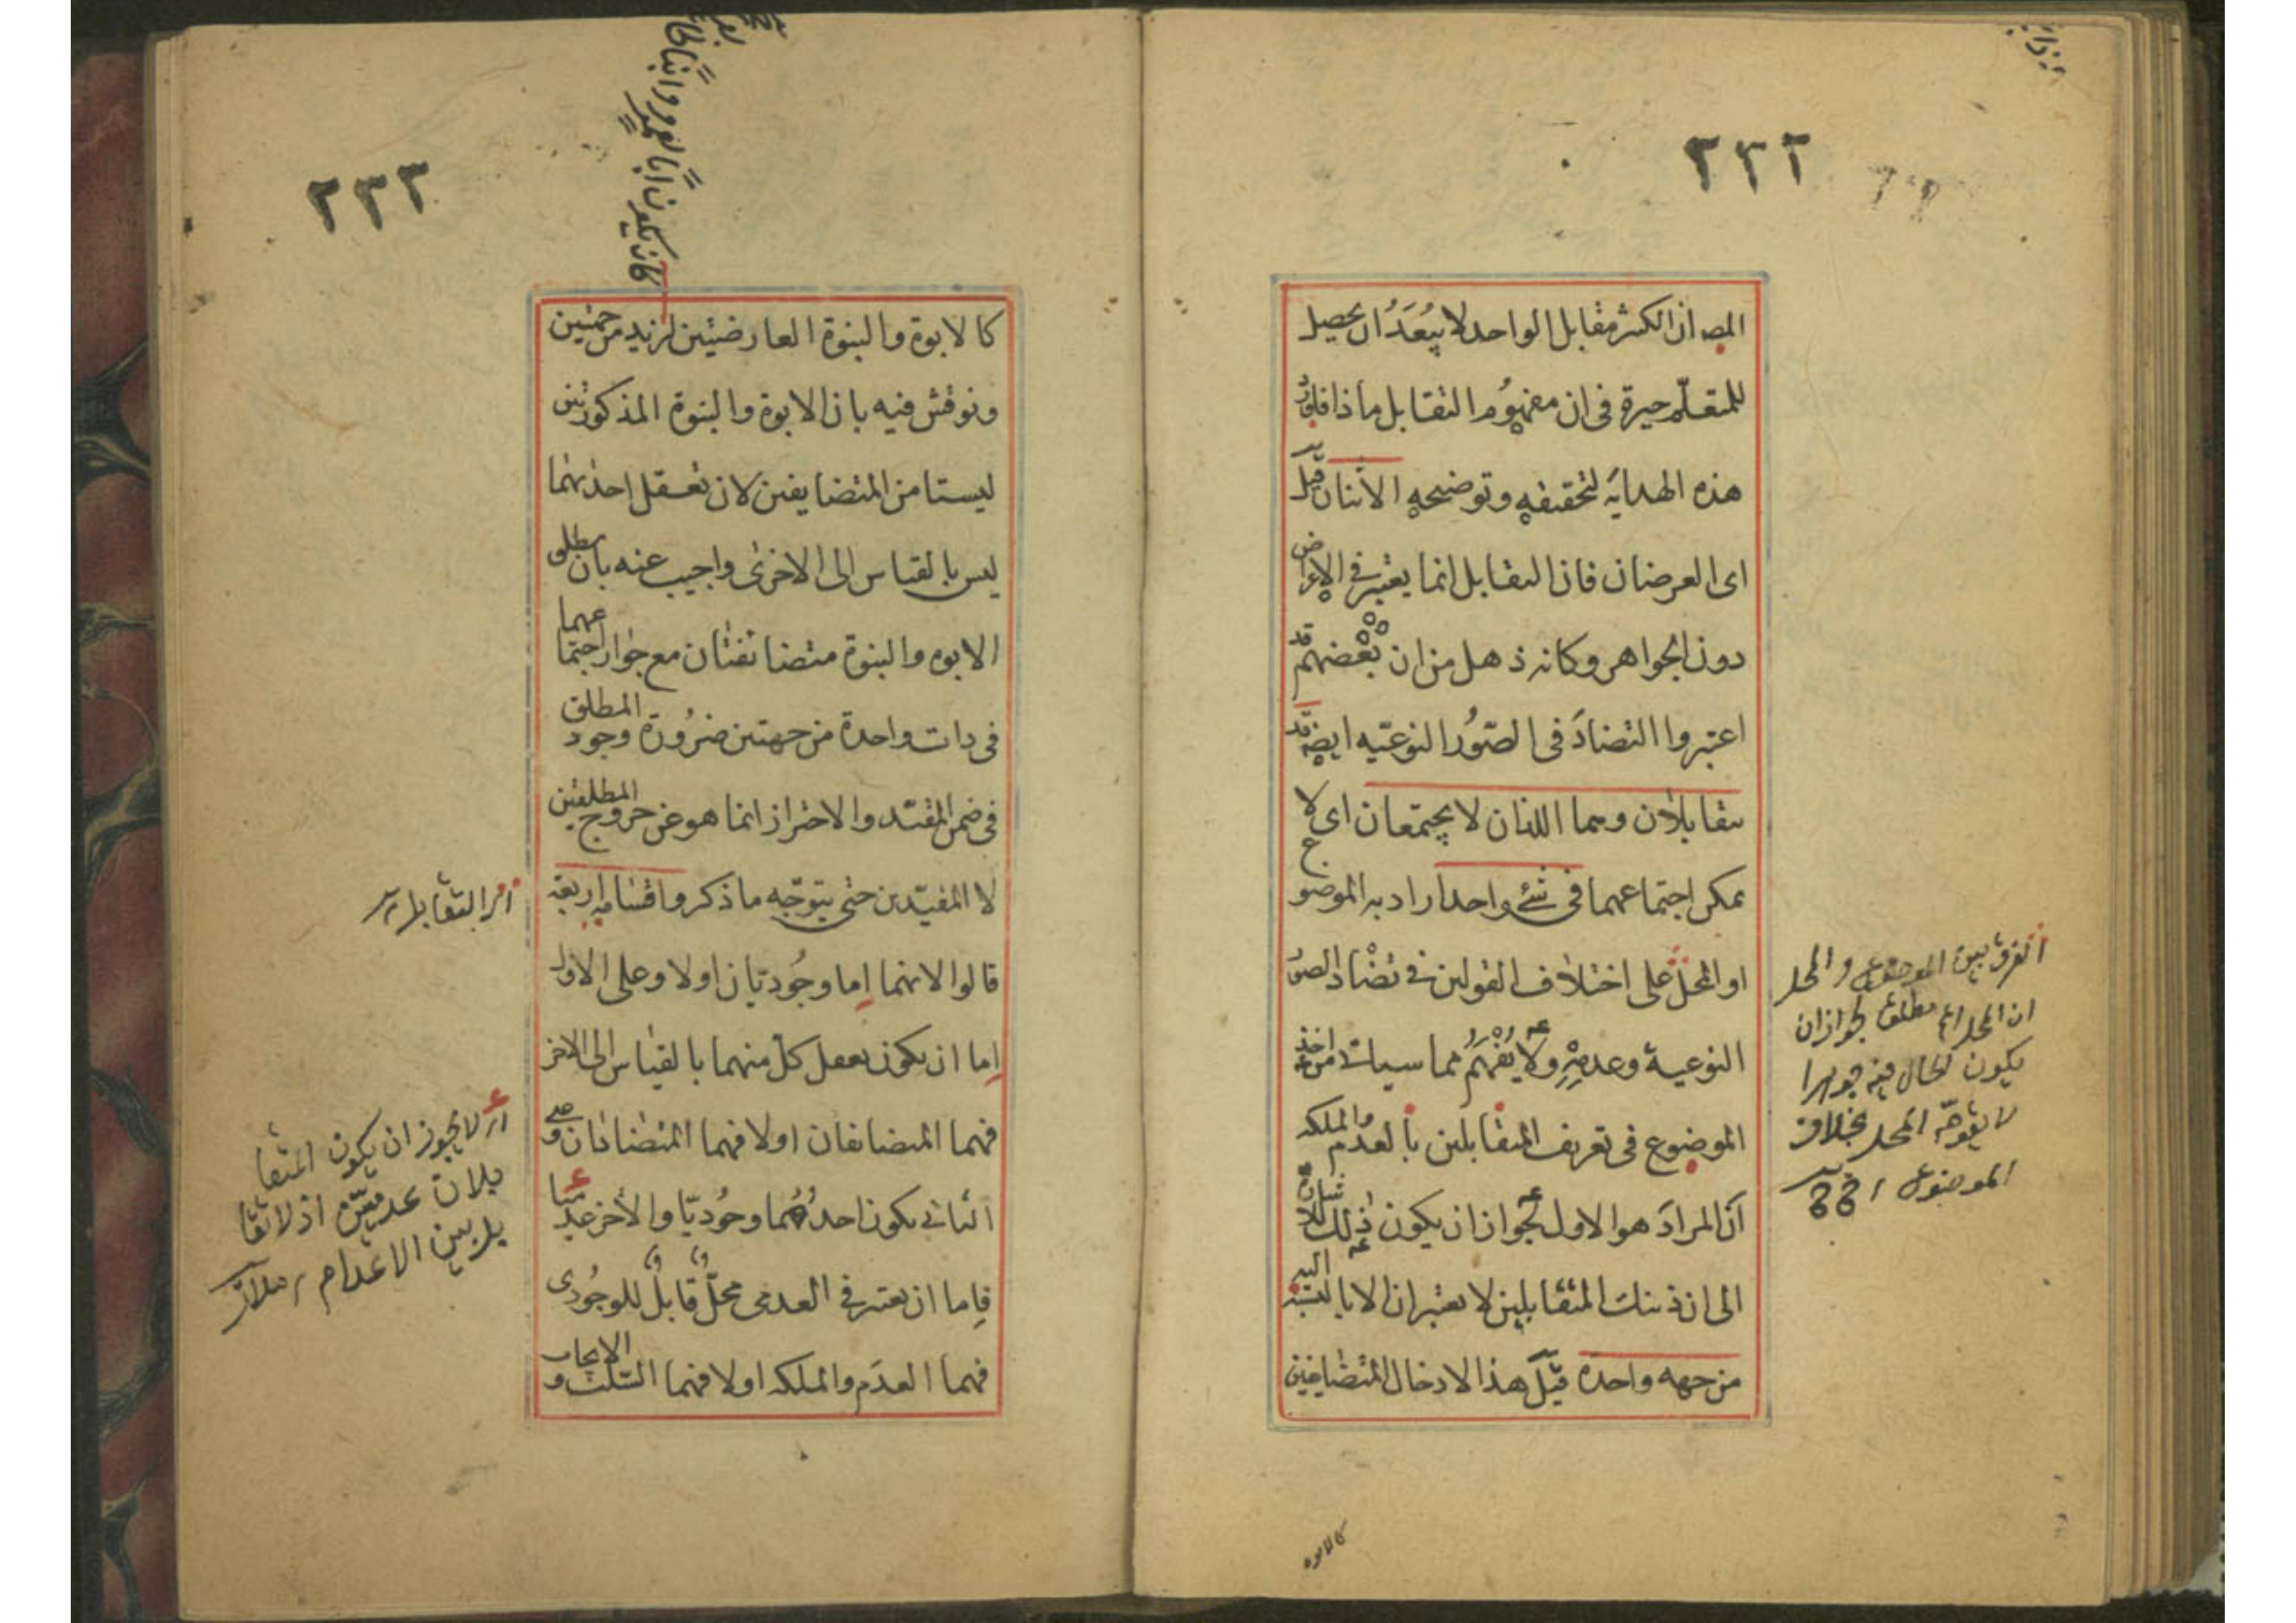 ٢٣٢
المص ان الكثير مقابل الواحد لا يبعد ان يحصل
للمتعلم حيرة فى ان مفهوم التقابل ماذا فاورد
هذه الهداية لتحقيقه وتوضيحه الاثنان قيل
اى العرضان فان التقابل انما يعتبر فى الاعراض
دون الجواهر وكانه ذهل من ان بعضهم قد
اعتبروا التضاد فى الصور النوعيه ايضا قد
يتقابلان وهما اللذان لا يجتمعان اى لا
يمكن اجتماعهما فى شئ واحد اراد به الموضوع
او المحل على اختلاف القولين فى تضاد الصور
النوعية وعدمه ولا يفهم مما سيات من اخذ
الموضوع فى تعريف المتقابلين بالعدم والملكه
ان المراد هو الاول لجواز ان يكون ذلك
الى ان ذينك المتقابلين لا يعتبران الا بالنسبة اليه
من جهه واحدة قيل هذا لادخال المتضايفين
الفرق بين الموضوع والمحل
ان المحل مطلق لجواز ان
يكون الحال فيه جوهرا
المحل بخلاف
الموضوع
كالابوه
٢٣٣
كالابوة والبنوة العارضيتين لزيد من جهتين
ونوقش فيه بان الابوة والبنوة المذكورتين
ليستا من المتضايفين لان تعقل احدىهما
ليس بالقياس الى الاخرى واجيب عنه بان مطلق
الابوه والبنوة متضائفتان مع جواز اجتماعهما
فى ذات واحدة من جهتين ضرورة وجود المطلق
فى ضمن المقيد والاحتراز انما هو عن خروج المطلقين
لا المقيدين حتى يتوجه ما ذكر واقسامه اربعة
قالوا لانهما اما وجوديان اولا وعلى الاول
اما ان يكون تعقل كل منهما بالقياس الى الاخر
فهما المتضايفان اولا فهما المتضادان وعلى
الثانى يكون احدهما وجوديا والاخر عدميا
فاما ان يعتبر فى العدمى محل قابل للوجودى
فهما العدم والملكه اولا فهما السلب والايجاب
اى التقابل
اى لا يجوز ان يكون المتقا
بلان عدميين اذ لا تقا
بل بين الاعدام